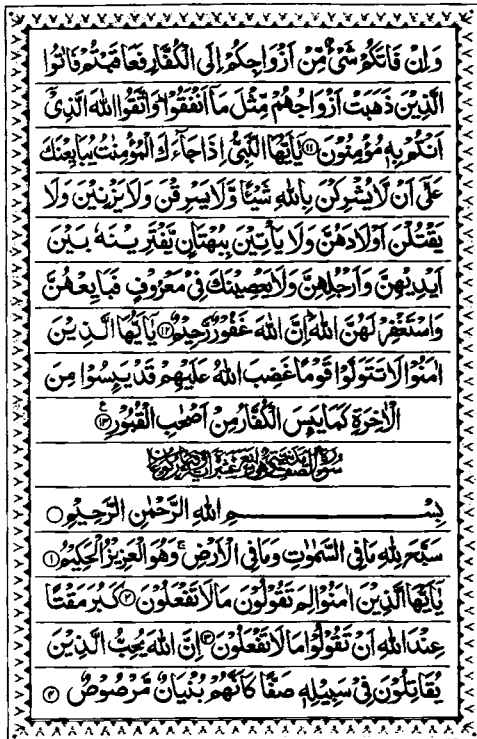 وَاِنْ فَاتَكُمْ شَیْءٌ مِّنْ اَزْوَاجِكُمْ اِلَی الْكُفَّارِ فَعَاقَبْتُمْ فَاٰتُوا
الَّذِیْنَ ذَهَبَتْ اَزْوَاجُهُمْ مِّثْلَ مَاۤ اَنْفَقُوْا ؕ وَاتَّقُوا اللّٰهَ الَّذِیْۤ
اَنْتُمْ بِهٖ مُؤْمِنُوْنَ ﴿۱۱﴾ یٰۤاَیُّهَا النَّبِیُّ اِذَا جَآءَكَ الْمُؤْمِنٰتُ یُبَایِعْنَكَ
عَلٰۤی اَنْ لَّا یُشْرِكْنَ بِاللّٰهِ شَیْـًٔا وَّلَا یَسْرِقْنَ وَلَا یَزْنِیْنَ وَلَا
یَقْتُلْنَ اَوْلَادَهُنَّ وَلَا یَاْتِیْنَ بِبُهْتَانٍ یَّفْتَرِیْنَهٗ بَیْنَ
اَیْدِیْهِنَّ وَاَرْجُلِهِنَّ وَلَا یَعْصِیْنَكَ فِیْ مَعْرُوْفٍ فَبَایِعْهُنَّ
وَاسْتَغْفِرْ لَهُنَّ اللّٰهَ ؕ اِنَّ اللّٰهَ غَفُوْرٌ رَّحِیْمٌ ﴿۱۲﴾ یٰۤاَیُّهَا الَّذِیْنَ
اٰمَنُوْا لَا تَتَوَلَّوْا قَوْمًا غَضِبَ اللّٰهُ عَلَیْهِمْ قَدْ یَىِٕسُوْا مِنَ
الْاٰخِرَةِ كَمَا یَىِٕسَ الْكُفَّارُ مِنْ اَصْحٰبِ الْقُبُوْرِ ﴿۱۳﴾ ع
بِسْمِ اللّٰهِ الرَّحْمٰنِ الرَّحِیْمِ
سَبَّحَ لِلّٰهِ مَا فِی السَّمٰوٰتِ وَمَا فِی الْاَرْضِ ۚ وَهُوَ الْعَزِیْزُ الْحَكِیْمُ ﴿۱﴾
یٰۤاَیُّهَا الَّذِیْنَ اٰمَنُوْا لِمَ تَقُوْلُوْنَ مَا لَا تَفْعَلُوْنَ ﴿۲﴾ كَبُرَ مَقْتًا
عِنْدَ اللّٰهِ اَنْ تَقُوْلُوْا مَا لَا تَفْعَلُوْنَ ﴿۳﴾ اِنَّ اللّٰهَ یُحِبُّ الَّذِیْنَ
یُقَاتِلُوْنَ فِیْ سَبِیْلِهٖ صَفًّا كَاَنَّهُمْ بُنْیَانٌ مَّرْصُوْصٌ ﴿۴﴾